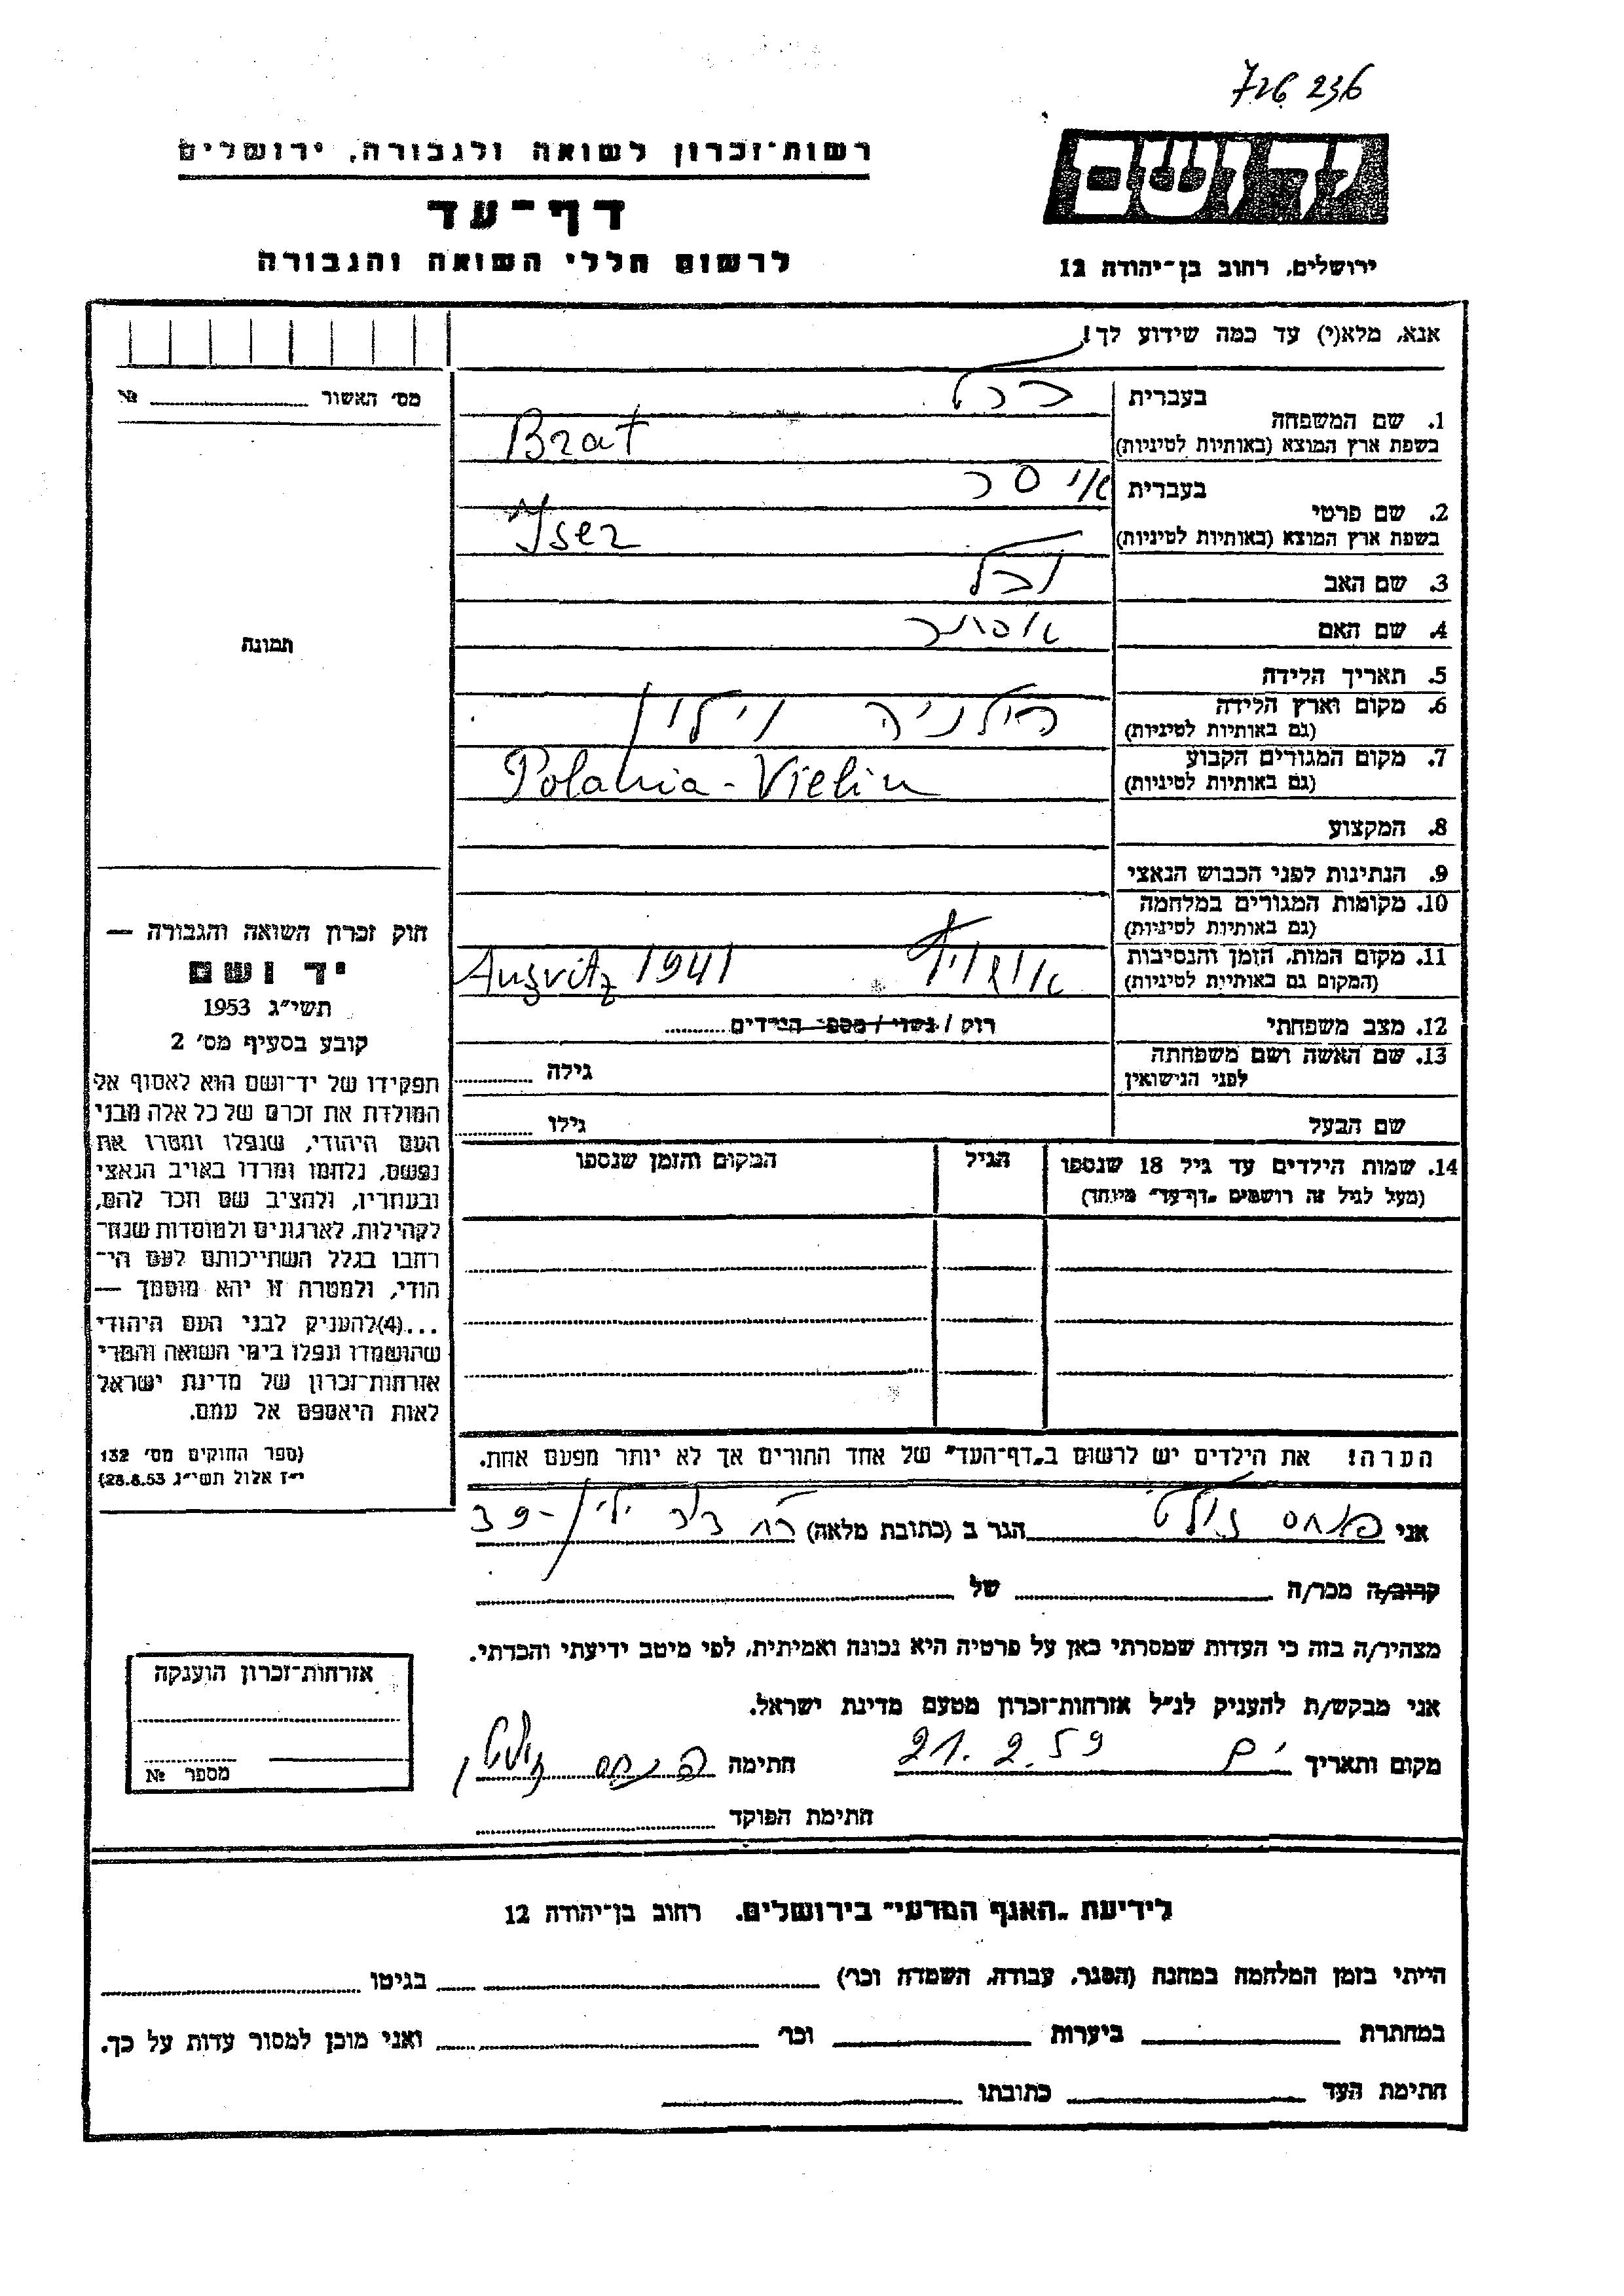 7கு 236
רשות־זכרון לשואה ולגבורה, ירושלים
דף־עד
לרשום חללי השואה והגבורה
יד ושם
ירושלים, רחוב בן־יהודה 12
אנא, מלא(י) עד כמה שידוע לך!
מס' האשור № 
תמונה
1. שם המשפחה
בעברית
בשפת ארץ המוצא (באותיות לטיניות)
Brat
2. שם פרטי
בעברית איסר
בשפת ארץ המוצא (באותיות לטיניות)
Iser
3. שם האב
4. שם האם אסתר
5. תאריך הלידה
6. מקום וארץ הלידה
(גם באותיות לטיניות)
פולניה וילון
7. מקום המגורים הקבוע
(גם באותיות לטיניות)
Polania - Vielin
8. המקצוע
9. הנתינות לפני הכבוש הנאצי
10. מקומות המגורים במלחמה
(גם באותיות לטיניות)
11. מקום המות, הזמן והנסיבות
(המקום גם באותיות לטיניות)
Ausvitz 1941
12. מצב משפחתי רווק / נשוי / מספר הילדים
13. שם האשה ושם משפחתה
לפני הנישואין
גילה
שם הבעל
גילו
14. שמות הילדים עד גיל 18 שנספו
(מעל לגיל זה רושמים „דף־עד" מיוחד)
הגיל
המקום והזמן שנספו
הערה! את הילדים יש לרשום ב„דף־העד" של אחד ההורים אך לא יותר מפעם אחת.
חוק זכרון השואה והגבורה —
יד ושם
תשי״ג 1953
קובע בסעיף מס' 2
תפקידו של יד־ושם הוא לאסוף אל
המולדת את זכרם של כל אלה מבני
העם היהודי, שנפלו ומסרו את
נפשם, נלחמו ומרדו באויב הנאצי
ובעוזריו, ולהציב שם וזכר להם,
לקהילות, לארגונים ולמוסדות שנח־
רבו בגלל השתייכותם לעם הי־
הודי, ולמטרה זו יהא מוסמך —
...(4)להעניק לבני העם היהודי
שהושמדו ונפלו בימי השואה והמרי
אזרחות־זכרון של מדינת ישראל
לאות היאספם אל עמם.
(ספר החוקים מס' 132
י״ז אלול תשי״ג 28.8.53)
אני פנחס הגר ב (כתובת מלאה) 39
קרוב/ה מכר/ה של
מצהיר/ה בזה כי העדות שמסרתי כאן על פרטיה היא נכונה ואמיתית, לפי מיטב ידיעתי והכרתי.
אני מבקש/ת להעניק לנ״ל אזרחות־זכרון מטעם מדינת ישראל.
מקום ותאריך 21.2.59 חתימה פנחס
חתימת הפוקד
אזרחות־זכרון הוענקה
מספר №
לידיעת „האגף המדעי" בירושלים, רחוב בן־יהודה 12
הייתי בזמן המלחמה במחנה (הסגר, עבודה, השמדה וכו') בגיטו
במחתרת ביערות וכו' ואני מוכן למסור עדות על כך.
חתימת העד כתובתו